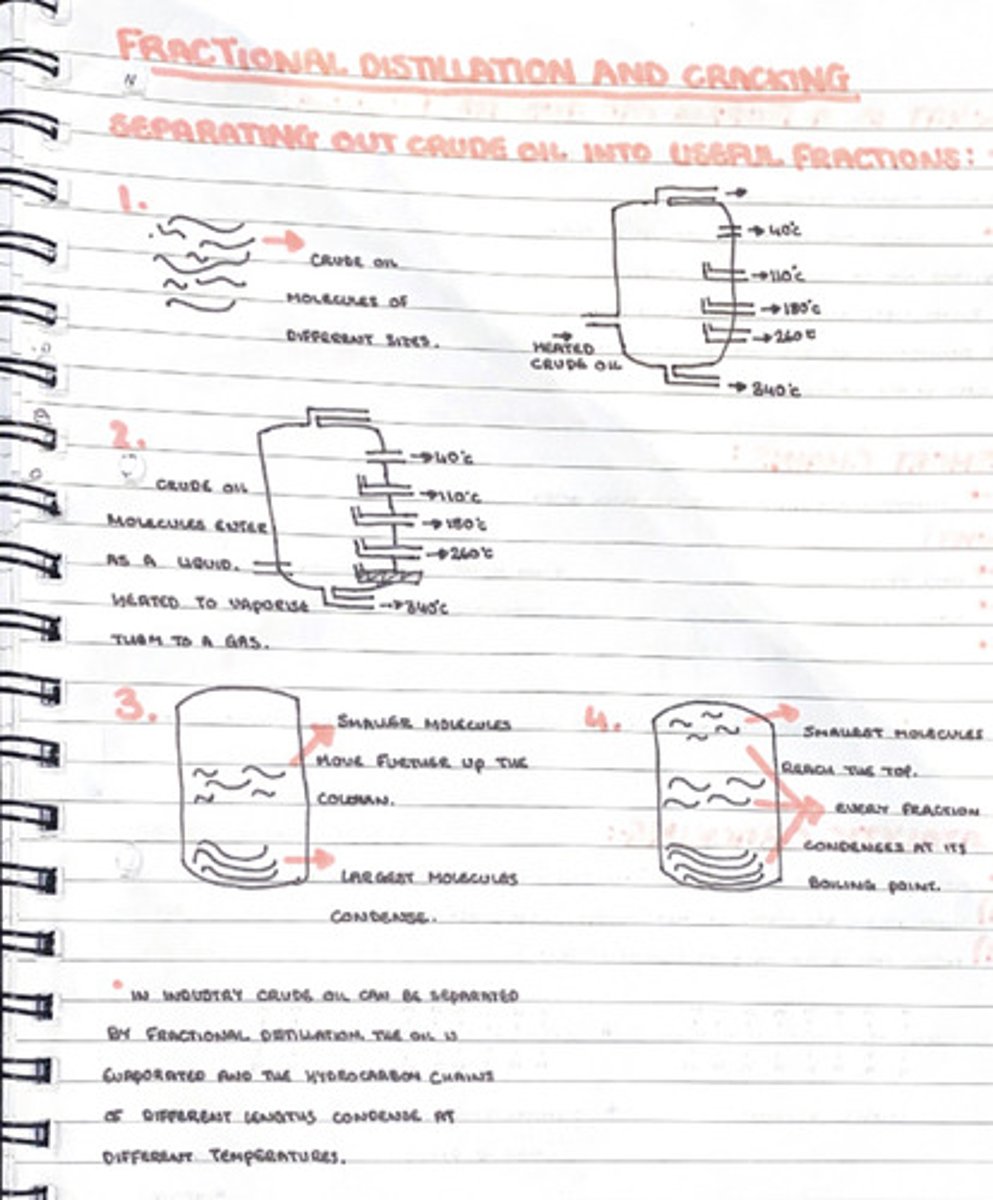 FRACTIONAL DISTILLATION AND CRACKING
SEPARATING OUT CRUDE OIL INTO USEFUL FRACTIONS:
1.
CRUDE OIL
MOLECULES OF
DIFFERENT SIZES.
40°C
110°C
180°C
260°C
340°C
HEATED
CRUDE OIL
2.
CRUDE OIL
MOLECULES ENTER
AS A LIQUID.
HEATED TO VAPORISE
THAM TO A GAS.
40°C
110°C
180°C
260°C
340°C
3.
SMALLER MOLECULES
MOVE FURTHER UP THE
COLOUMN.
LARGEST MOLECULES
CONDENSE.
4.
SMALLEST MOLECULES
REACH THE TOP.
EVERY FRACTION
CONDENSES AT ITS
BOILING POINT.
• IN INDUSTRY CRUDE OIL CAN BE SEPARATED
BY FRACTIONAL DISTILLATION. THE OIL IS
EVAPORATED AND THE HYDROCARBON CHAINS
OF DIFFERENT LENGTHS CONDENSE AT
DIFFERENT TEMPERATURES.